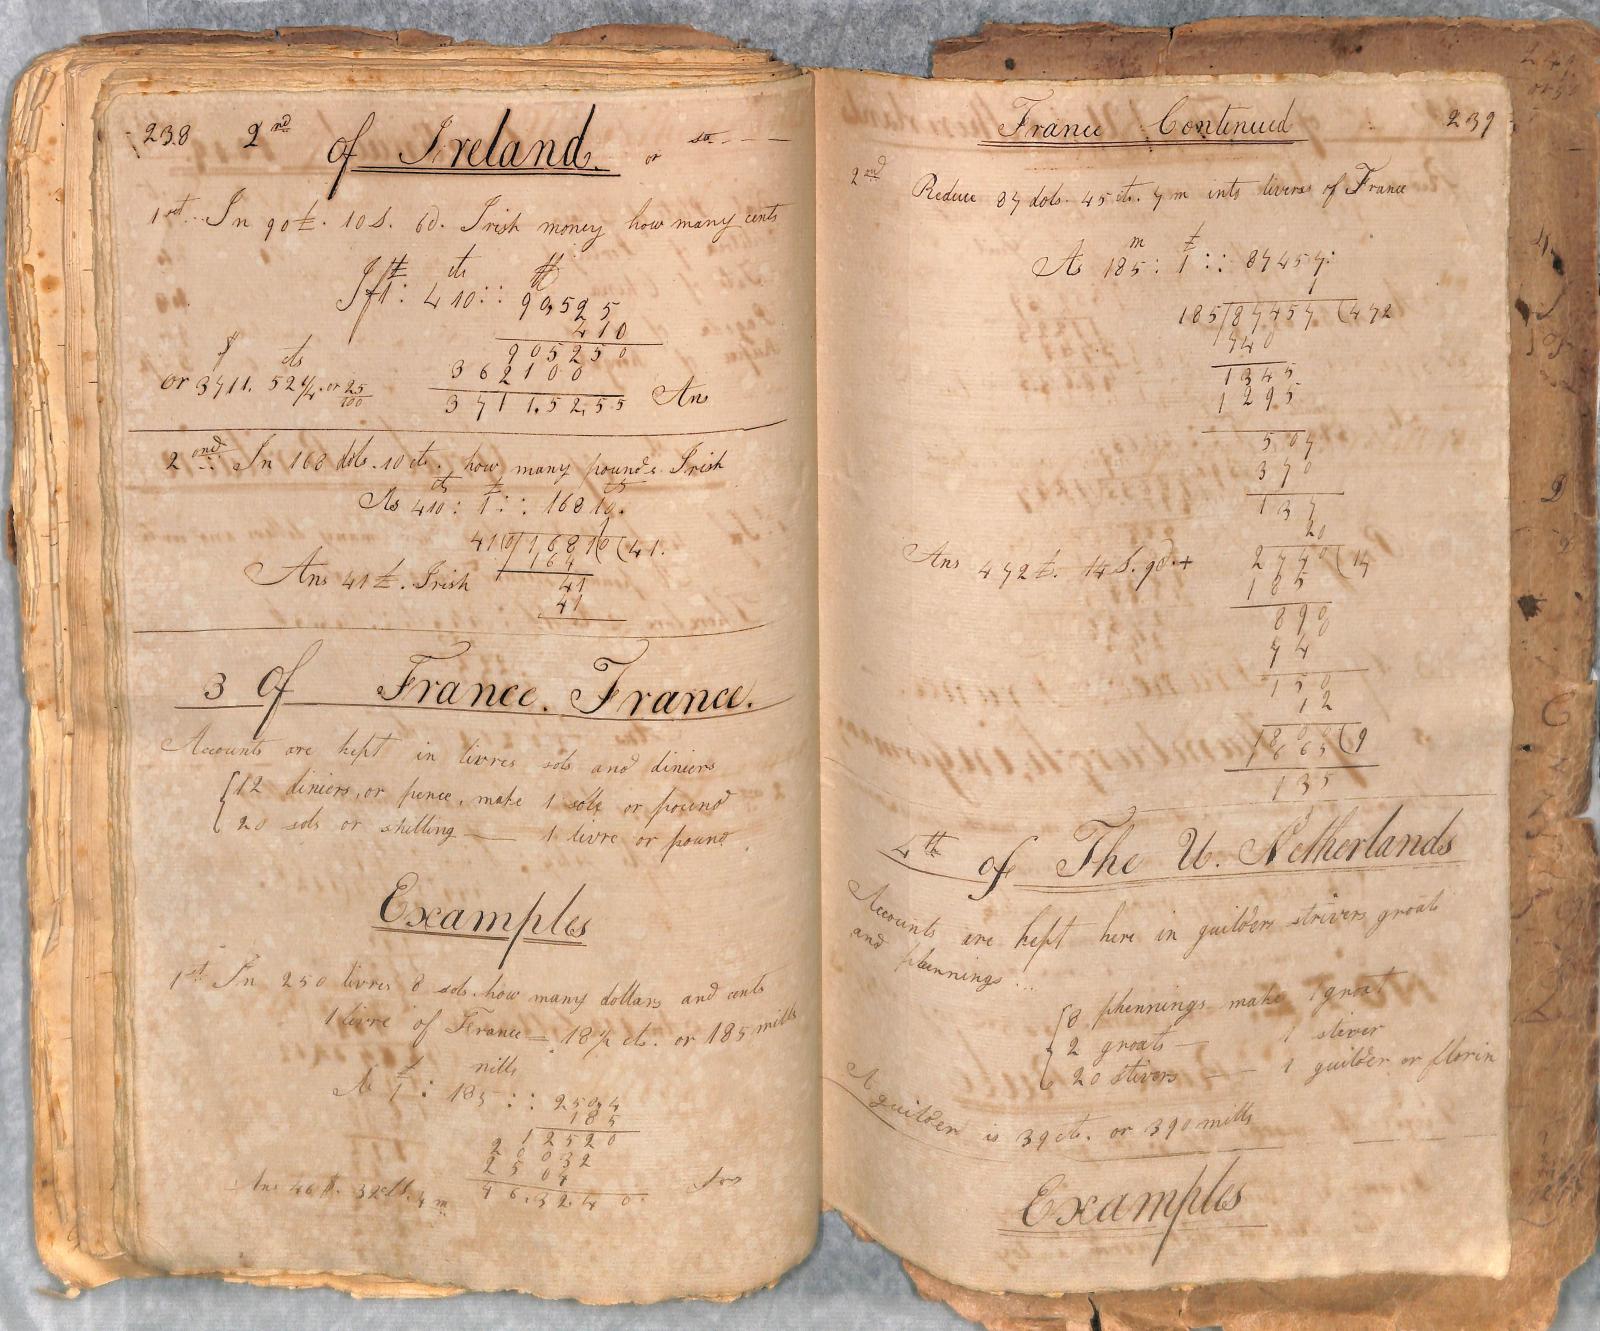 238 2nd of Ireland. or
1st In 90£. 10S. 6d. Irish money how many cents
£ cts £
If 1 : 410 :: 90,525
410
905250
362100
3711.52,55 Ans
$ cts
or 3711. 52 1/4. or 25/100
2ond In 168 dols. 10 cts. how many pounds Irish
cts £ cts
As 410 : 1 :: 168 10.
41(0)1681(0(41.
164
41
41
Ans 41£. Irish
3 Of France. France.
Accounts are kept in livres sols and diniers
12 diniers, or pence, make 1 sole or pound
20 sols or shilling — 1 livre or pound.
Examples
1st In 250 livres 8 sols. how many dollars and cents
1 livre of France = 18 1/2 cts. or 185 mills
£ mills
As 1 : 185 :: 250,4
185
12520
20032
2504
46.324 0.
Ans 46$. 32cts. 4m
France Continued 239
2nd Reduce 87 dols. 45 cts. 7 m into livres of France
m £
As 185 : 1 :: 87457:
185)87457(472
740
1345
1295
507
370
137
20
2740(14
185
890
74
150
12
1800(9
1665
135
Ans 472£. 14S. 9d.+
4th of The U. Netherlands
Accounts are kept here in guilders strivers groats
and phennings...
8 phennings make 1 groat
2 groats — 1 stiver
20 stivers — 1 guilder or florin
A guilder is 39 cts. or 390 mills
Examples